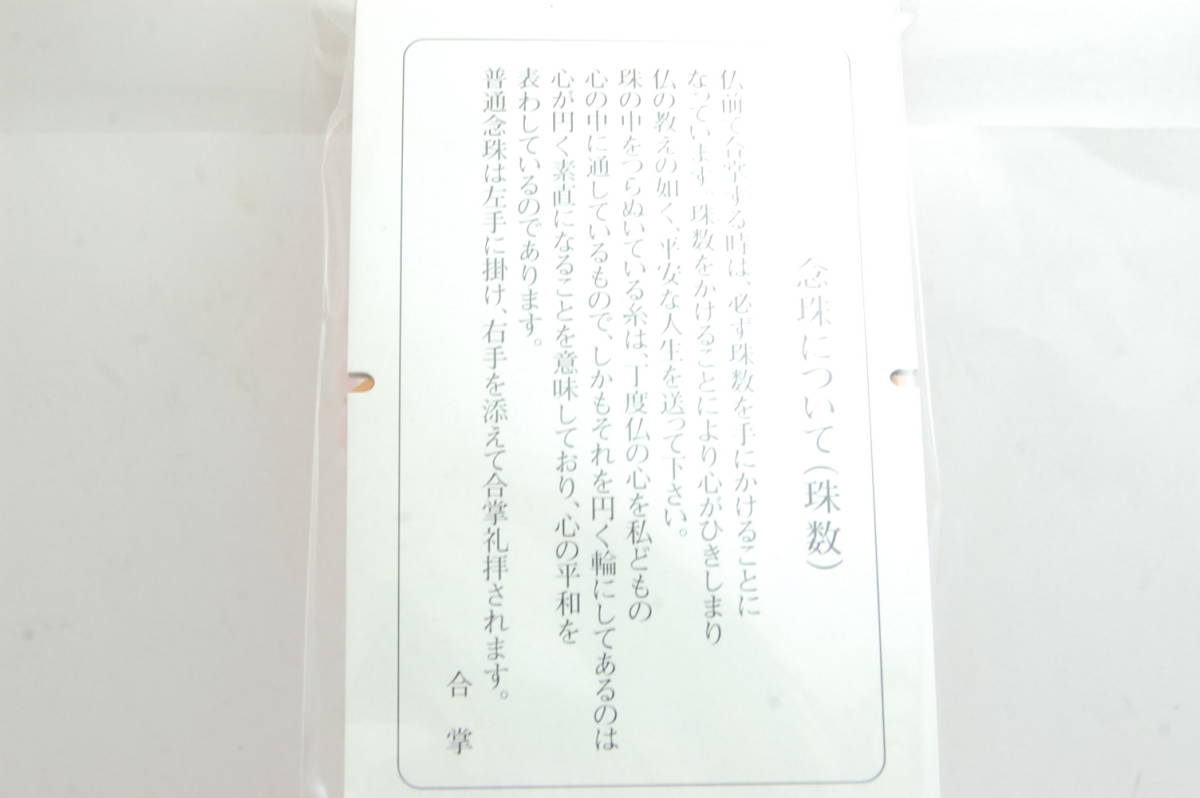 念珠について(珠数)
仏前で合掌する時は、必ず珠数を手にかけることに
なっています。珠数をかけることにより心がひきしまり
仏の教えの如く、平安な人生を送って下さい。
珠の中をつらぬいている糸は、丁度仏の心を私どもの
心の中に通しているもので、しかもそれを円く輪にしてあるのは
心が円く素直になることを意味しており、心の平和を
表わしているのであります。
普通念珠は左手に掛け、右手を添えて合掌礼拝されます。
合掌